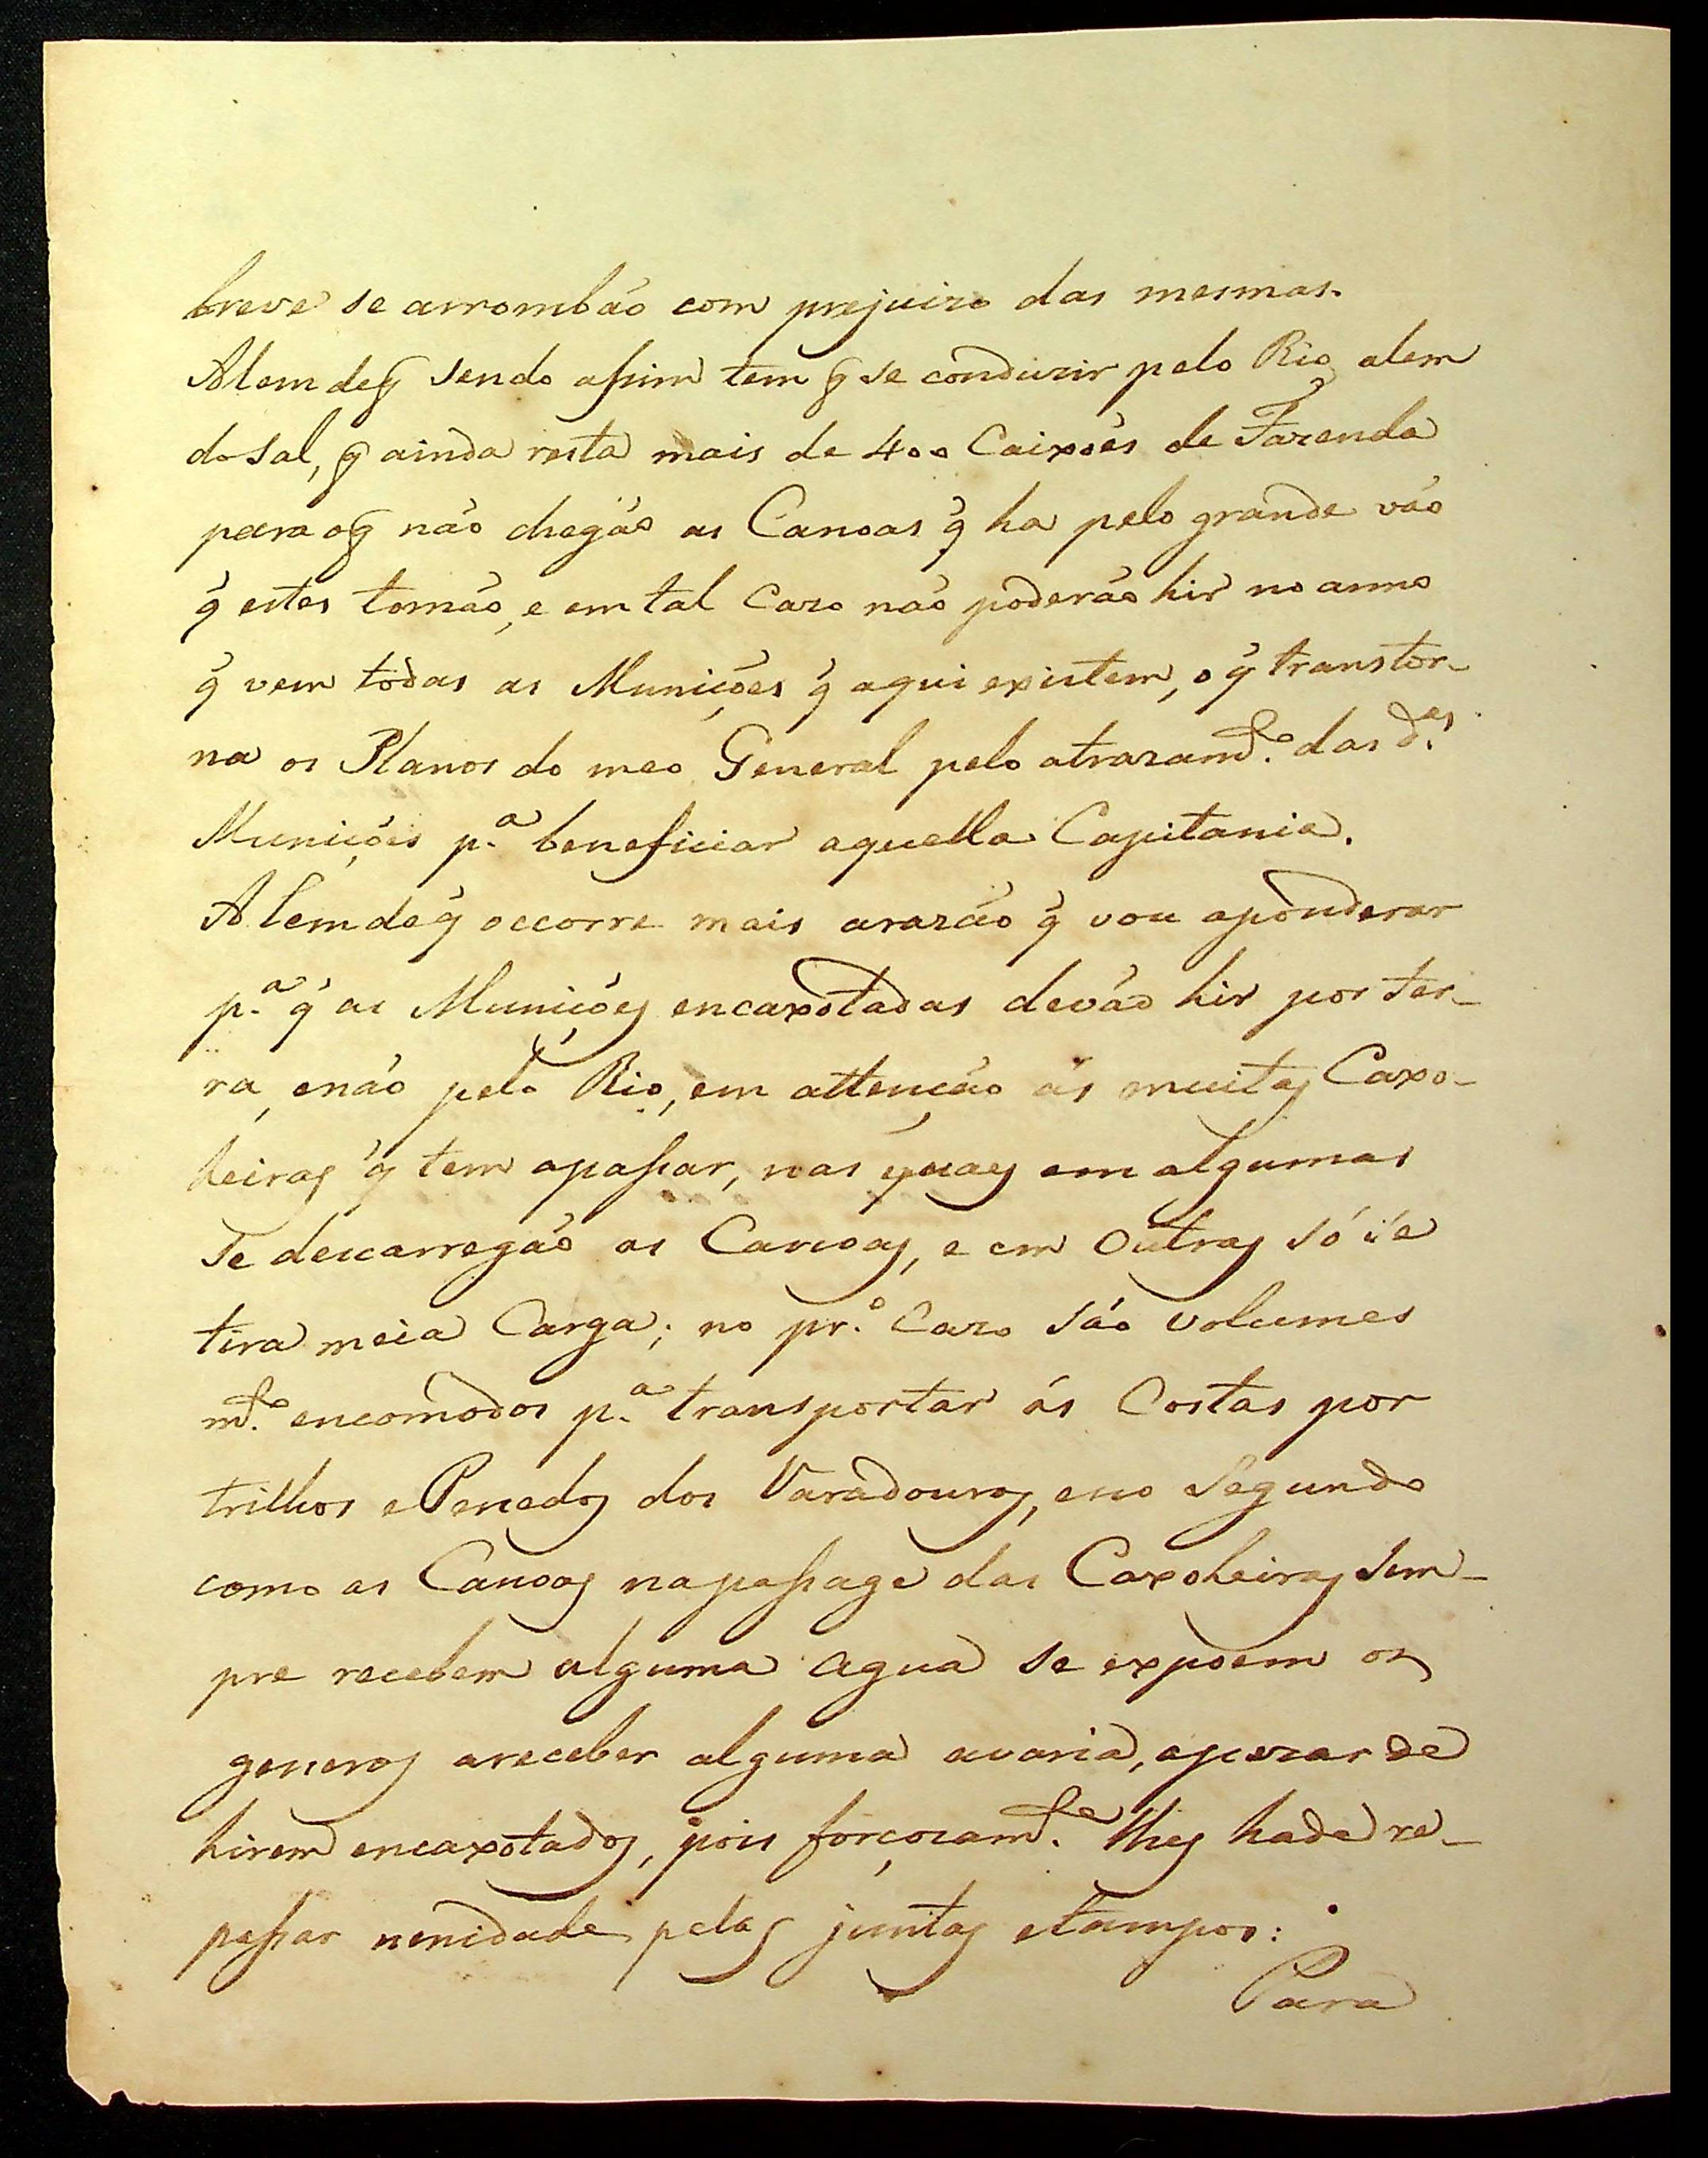 breve se arrombáo com prejuizo das mesmas.
Alem deq̃ sendo assim tem q̃ se conduzir pelo Rio alem
do sal, q̃ ainda resta mais de 400 Caixoẽs de Fazenda
para oq̃ náo chegáo as Canoas q̃ ha pelo grande váo
q̃ estes tomáo, e em tal Cazo náo poderáõ hir no anno
q̃ vem todas as Muniçóes q̃ aqui existem, o q̃ transtor-
na os Planos do meo General pelo atrazamt.º das d.as
Muniçóes p.ª beneficiar aquella Capitania.
Alem de q̃ occorre mais arazáo q̃ vou aponderar
p.ª q̃ as Muniçóes encaxotadas deváo hir por ter-
ra, enáo pelo Rio, em attençáo ás muitas Caxo-
heiras q̃ tem apassar, nas quaes em algumas
se descarregáo as Canoas, e em outras só se
tira meia Carga; no pr.º Cazo sáo volumes
mt.º encomodos p.ª transportar ás Costas por
trilhos e Penedos dos Varadouros, eno Segundo
como as Canoas napassage das Caxoheiras sem-
pre recebem alguma agua se expoem os
generos areceber alguma avaria, apezar de
hirem encaxotados, pois forçozamt.e lhes hade re-
passar umidade pelas juntas etampos:
Para